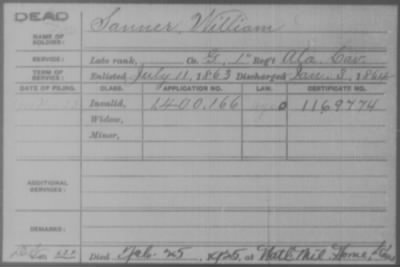 DEAD
NAME OF SOLDIER: Sanner, William
SERVICE: Late rank, Co. F, 1st Reg't Ala. Cav.
TERM OF SERVICE: Enlisted July 11, 1863 Discharged Jan. 3, 1864
DATE OF FILING. CLASS. APPLICATION NO. LAW. CERTIFICATE NO.
Invalid, 1400.166 1169774
Widow,
Minor,
ADDITIONAL SERVICES:
REMARKS:
Died Feb. 25, 1925, at Natl. Mil. Home,